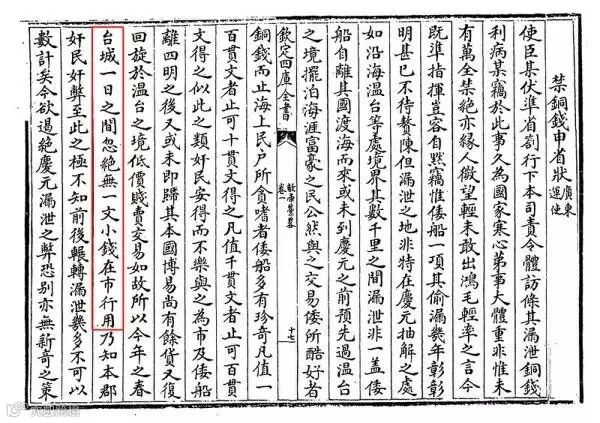 禁銅錢申省狀 廣東運使
使臣某伏準省劄行下本司責令體訪條具漏泄銅錢
利病某竊於此事久為國家寒心第事大體重非惟未
有萬全禁絶亦緣人微望輕未敢出鴻毛輕率之言今
既準指揮豈容自黙竊惟倭船一項其偷漏幾年彰彰
明甚已不待贅陳但漏泄之地非特在慶元抽解之處
如沿海温台等處境界其數千里之間漏泄非一蓋倭
船自離其國渡海而來或未到慶元之前預先過温台
之境擺泊海涯富豪之民公然與之交易倭所酷好者
欽定四庫全書
敝帚藁畧
卷一
十七
銅錢而止海上民戶所貪嗜者倭船多有珍奇凡值一
百貫文者止可十貫文得之凡值千貫文者止可百貫
文得之似此之類奸民安得而不樂與之為市及倭船
離四明之後又或未即歸其本國博易尚有餘貨又復
回旋於温台之境低價賤賣交易如故所以今年之春
台城一日之間忽絶無一文小錢在市行用乃知本郡
奸民奸弊至此之極不知前後輾轉漏泄幾多不可以
數計矣今欲遏絶慶元漏泄之弊恐别亦無新奇之策